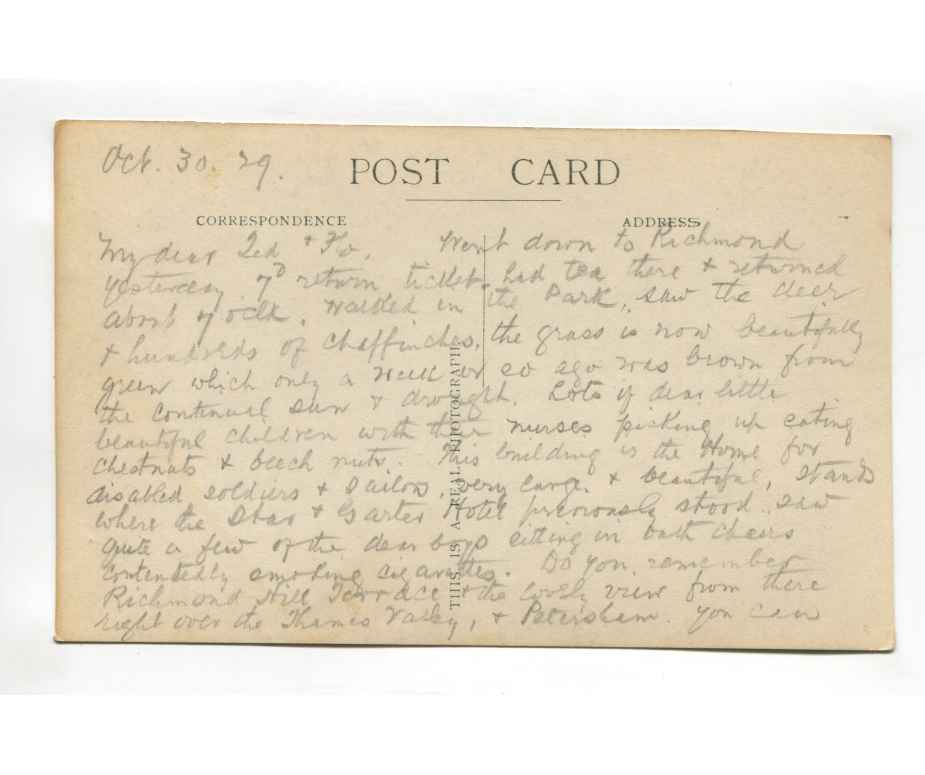 Oct. 30. 29.
POST CARD
CORRESPONDENCE
ADDRESS
My dear Ted + Flo, Went down to Richmond
yesterday 7D return ticket. had tea there + returned
about 7 oclk. Walked in the Park, saw the deer
+ hundreds of chaffinches, the grass is now beautifully
green which only a week or so ago was brown from
the continual sun + drought. Lots of dear little
beautiful children with their nurses picking up eating
chestnuts + beech nuts. This building is the Home for
disabled soldiers + sailors, very large + beautiful, stands
where the Star + Garter Hotel previously stood. saw
quite a few of the dear boys sitting in bath chairs
contentedly smoking cigarettes. Do you remember
Richmond Hill Terrace + the lovely view from there
right over the Thames Valley, + Petersham. you can
THIS IS A REAL PHOTOGRAPH